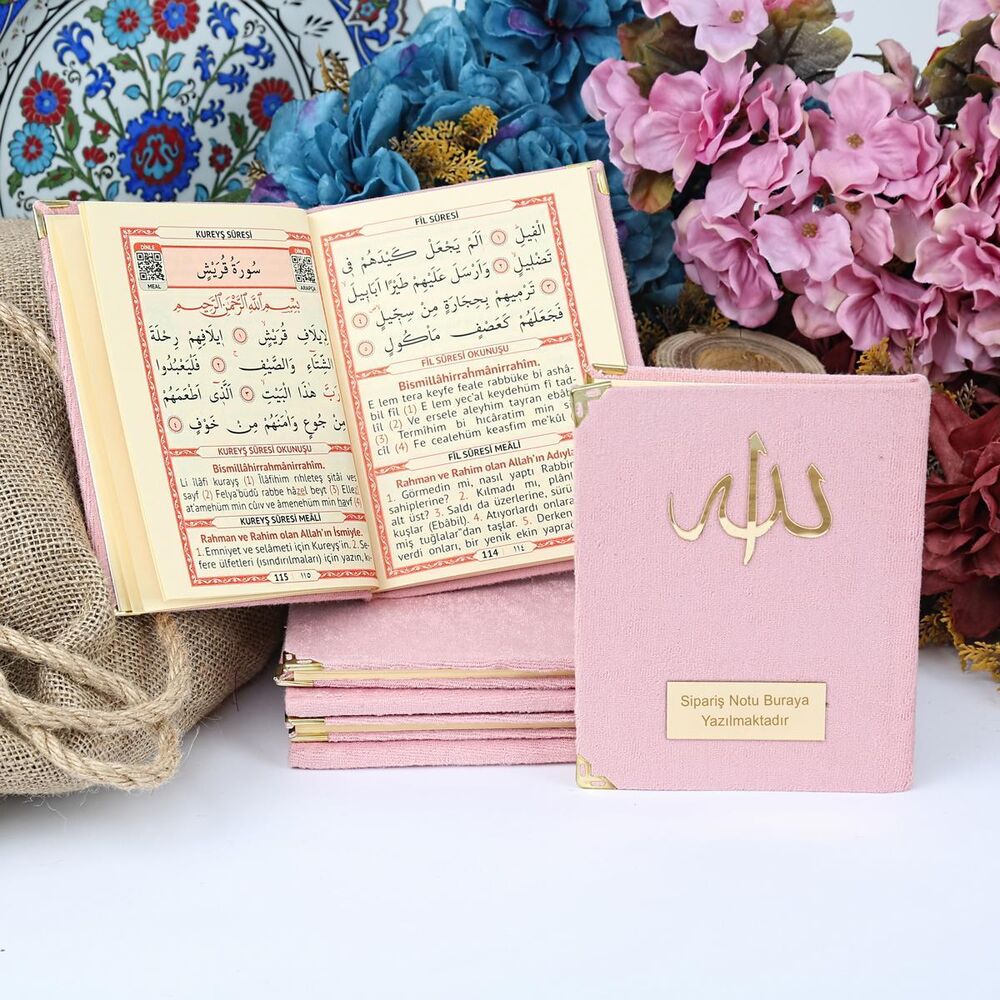 KUREYŞ SÛRESİ
DİNLE
MEAL
سُورَةُ قُرَيْشٍ
DİNLE
ARAPÇA
بِسْمِ اللّٰهِ الرَّحْمٰنِ الرَّحِيمِ
لِاٖيلَافِ قُرَيْشٍ ﴿١﴾ اٖيلَافِهِمْ رِحْلَةَ
الشِّتَٓاءِ وَالصَّيْفِ ﴿٢﴾ فَلْيَعْبُدُوا
رَبَّ هٰذَا الْبَيْتِ ﴿٣﴾ اَلَّذٖٓي اَطْعَمَهُمْ
مِنْ جُوعٍ وَاٰمَنَهُمْ مِنْ خَوْفٍ ﴿٤﴾
KUREYŞ SÛRESİ OKUNUŞU
Bismillâhirrahmânirrahîm.
Li îlâfi kurayş (1) Îlâfihim rıhleteş şitâi ves
sayf (2) Felya'büdû rabbe hâzel beyt (3) Ellez
at'amehüm min cûıv ve âmenehüm min havf (4)
KUREYŞ SÛRESİ MEÂLİ
Rahman ve Rahim olan Allah'ın İsmiyle.
1. Emniyet ve selâmeti için Kureyş'in. 2. Se-
fere ülfetleri (ısındırılmaları) için yazın, kı
115 ١١٥
FİL SÛRESİ
الْفٖيلِ ﴿١﴾ اَلَمْ يَجْعَلْ كَيْدَهُمْ فٖي
تَضْلٖيلٍ ﴿٢﴾ وَاَرْسَلَ عَلَيْهِمْ طَيْرًا اَبَابٖيلَ
﴿٣﴾ تَرْمٖيهِمْ بِحِجَارَةٍ مِنْ سِجّٖيلٍ
﴿٤﴾ فَجَعَلَهُمْ كَعَصْفٍ مَأْكُولٍ ﴿٥﴾
FİL SÛRESİ OKUNUŞU
Bismillâhirrahmânirrahîm.
E lem tera keyfe feale rabbüke bi ashâ-
bil fîl (1) E lem yec'al keydehüm fî tad
(2) Ve ersele aleyhim tayran ebâb
(3) Termîhim bi hıcâratim min s
cîl (4) Fe cealehüm keasfim me'kûl
FİL SÛRESİ MEÂLİ
Rahman ve Rahim olan Allah'ın Adıyla
1. Görmedin mi, nasıl yaptı Rabbin
sahiplerine? 2. Kılmadı mı, plânl
alt üst? 3. Saldı da üzerlerine, sürü
kuşlar (Ebâbil). 4. Atıyorlardı onlara
miş tuğlalar'dan taşlar. 5. Derken
verdi onları, bir yenik ekin yaprağ
114 ١١٤
الله
Sipariş Notu Buraya
Yazılmaktadır